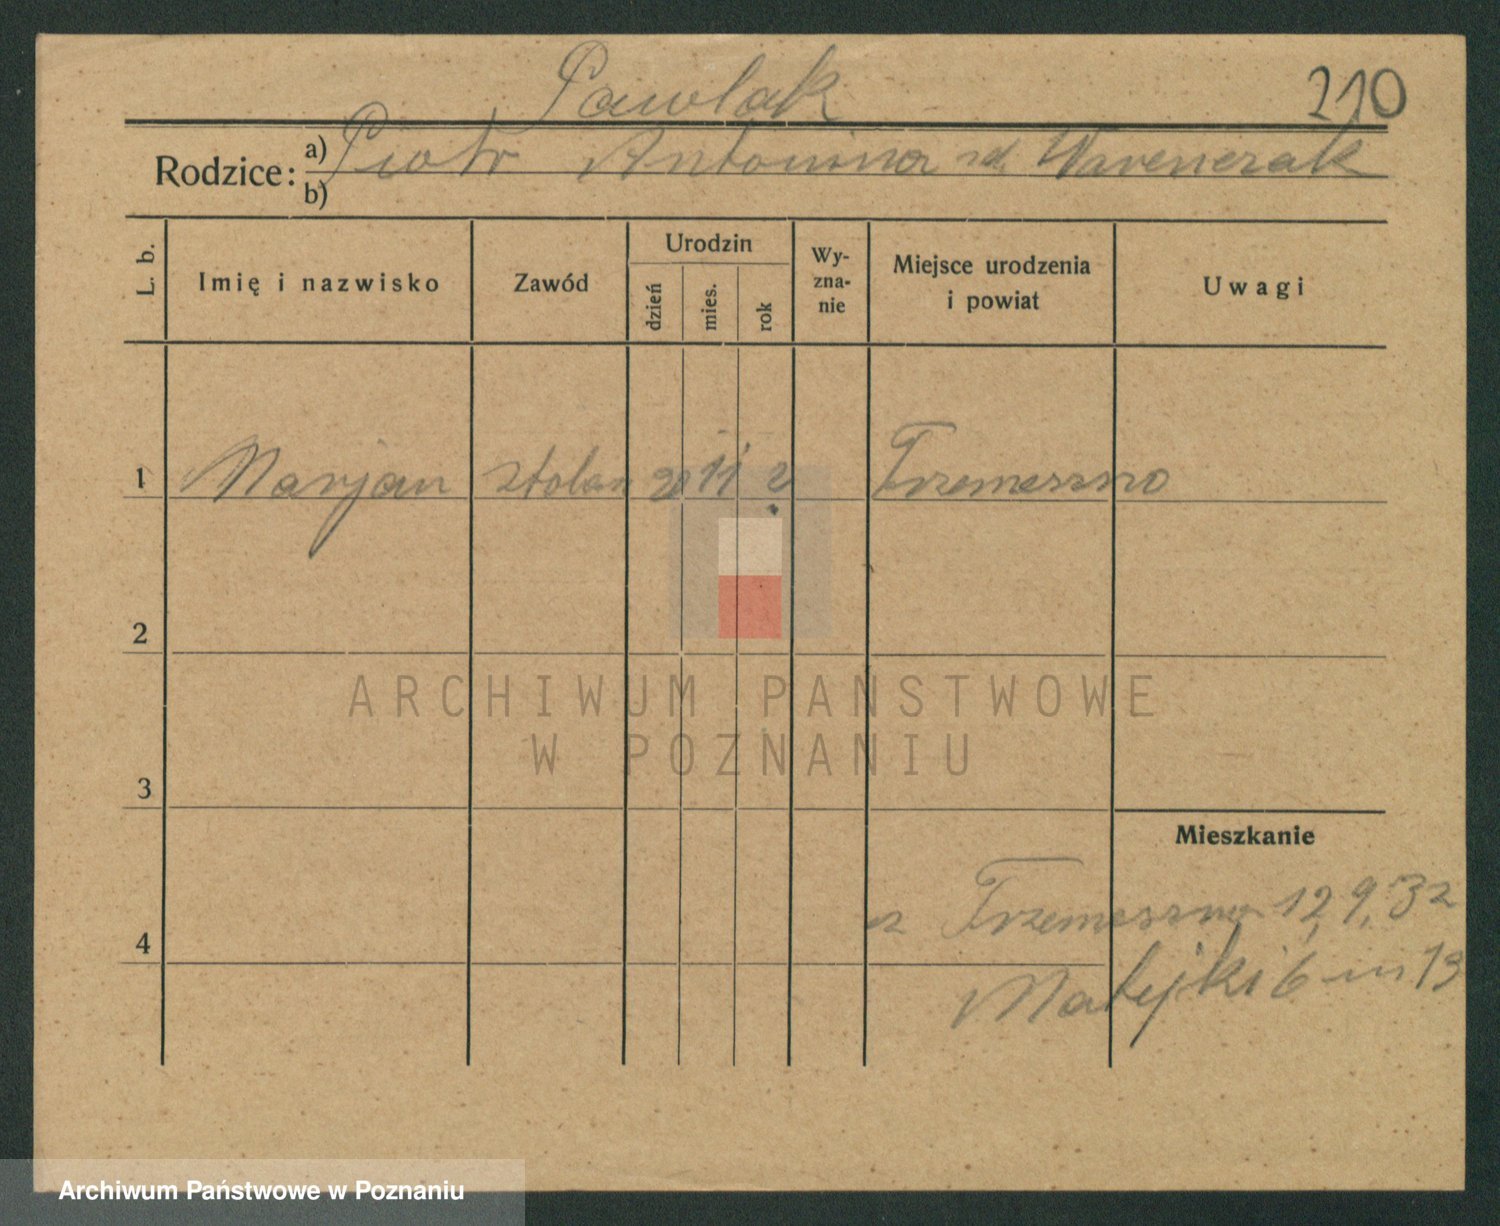 Pawlak
210
Rodzice:
a) Piotr Antonina
b)
L. b.
Imię i nazwisko
Zawód
Urodzin
dzień
mies.
rok
Wy-
zna-
nie
Miejsce urodzenia
i powiat
Uwagi
1 Marjan stolarz 20 11 ? Trzemeszno
2
3
4
ARCHIWUM PAŃSTWOWE
W POZNANIU
Mieszkanie
z Trzemeszna 12,9,32
Matejki 6 m 13
Archiwum Państwowe w Poznaniu